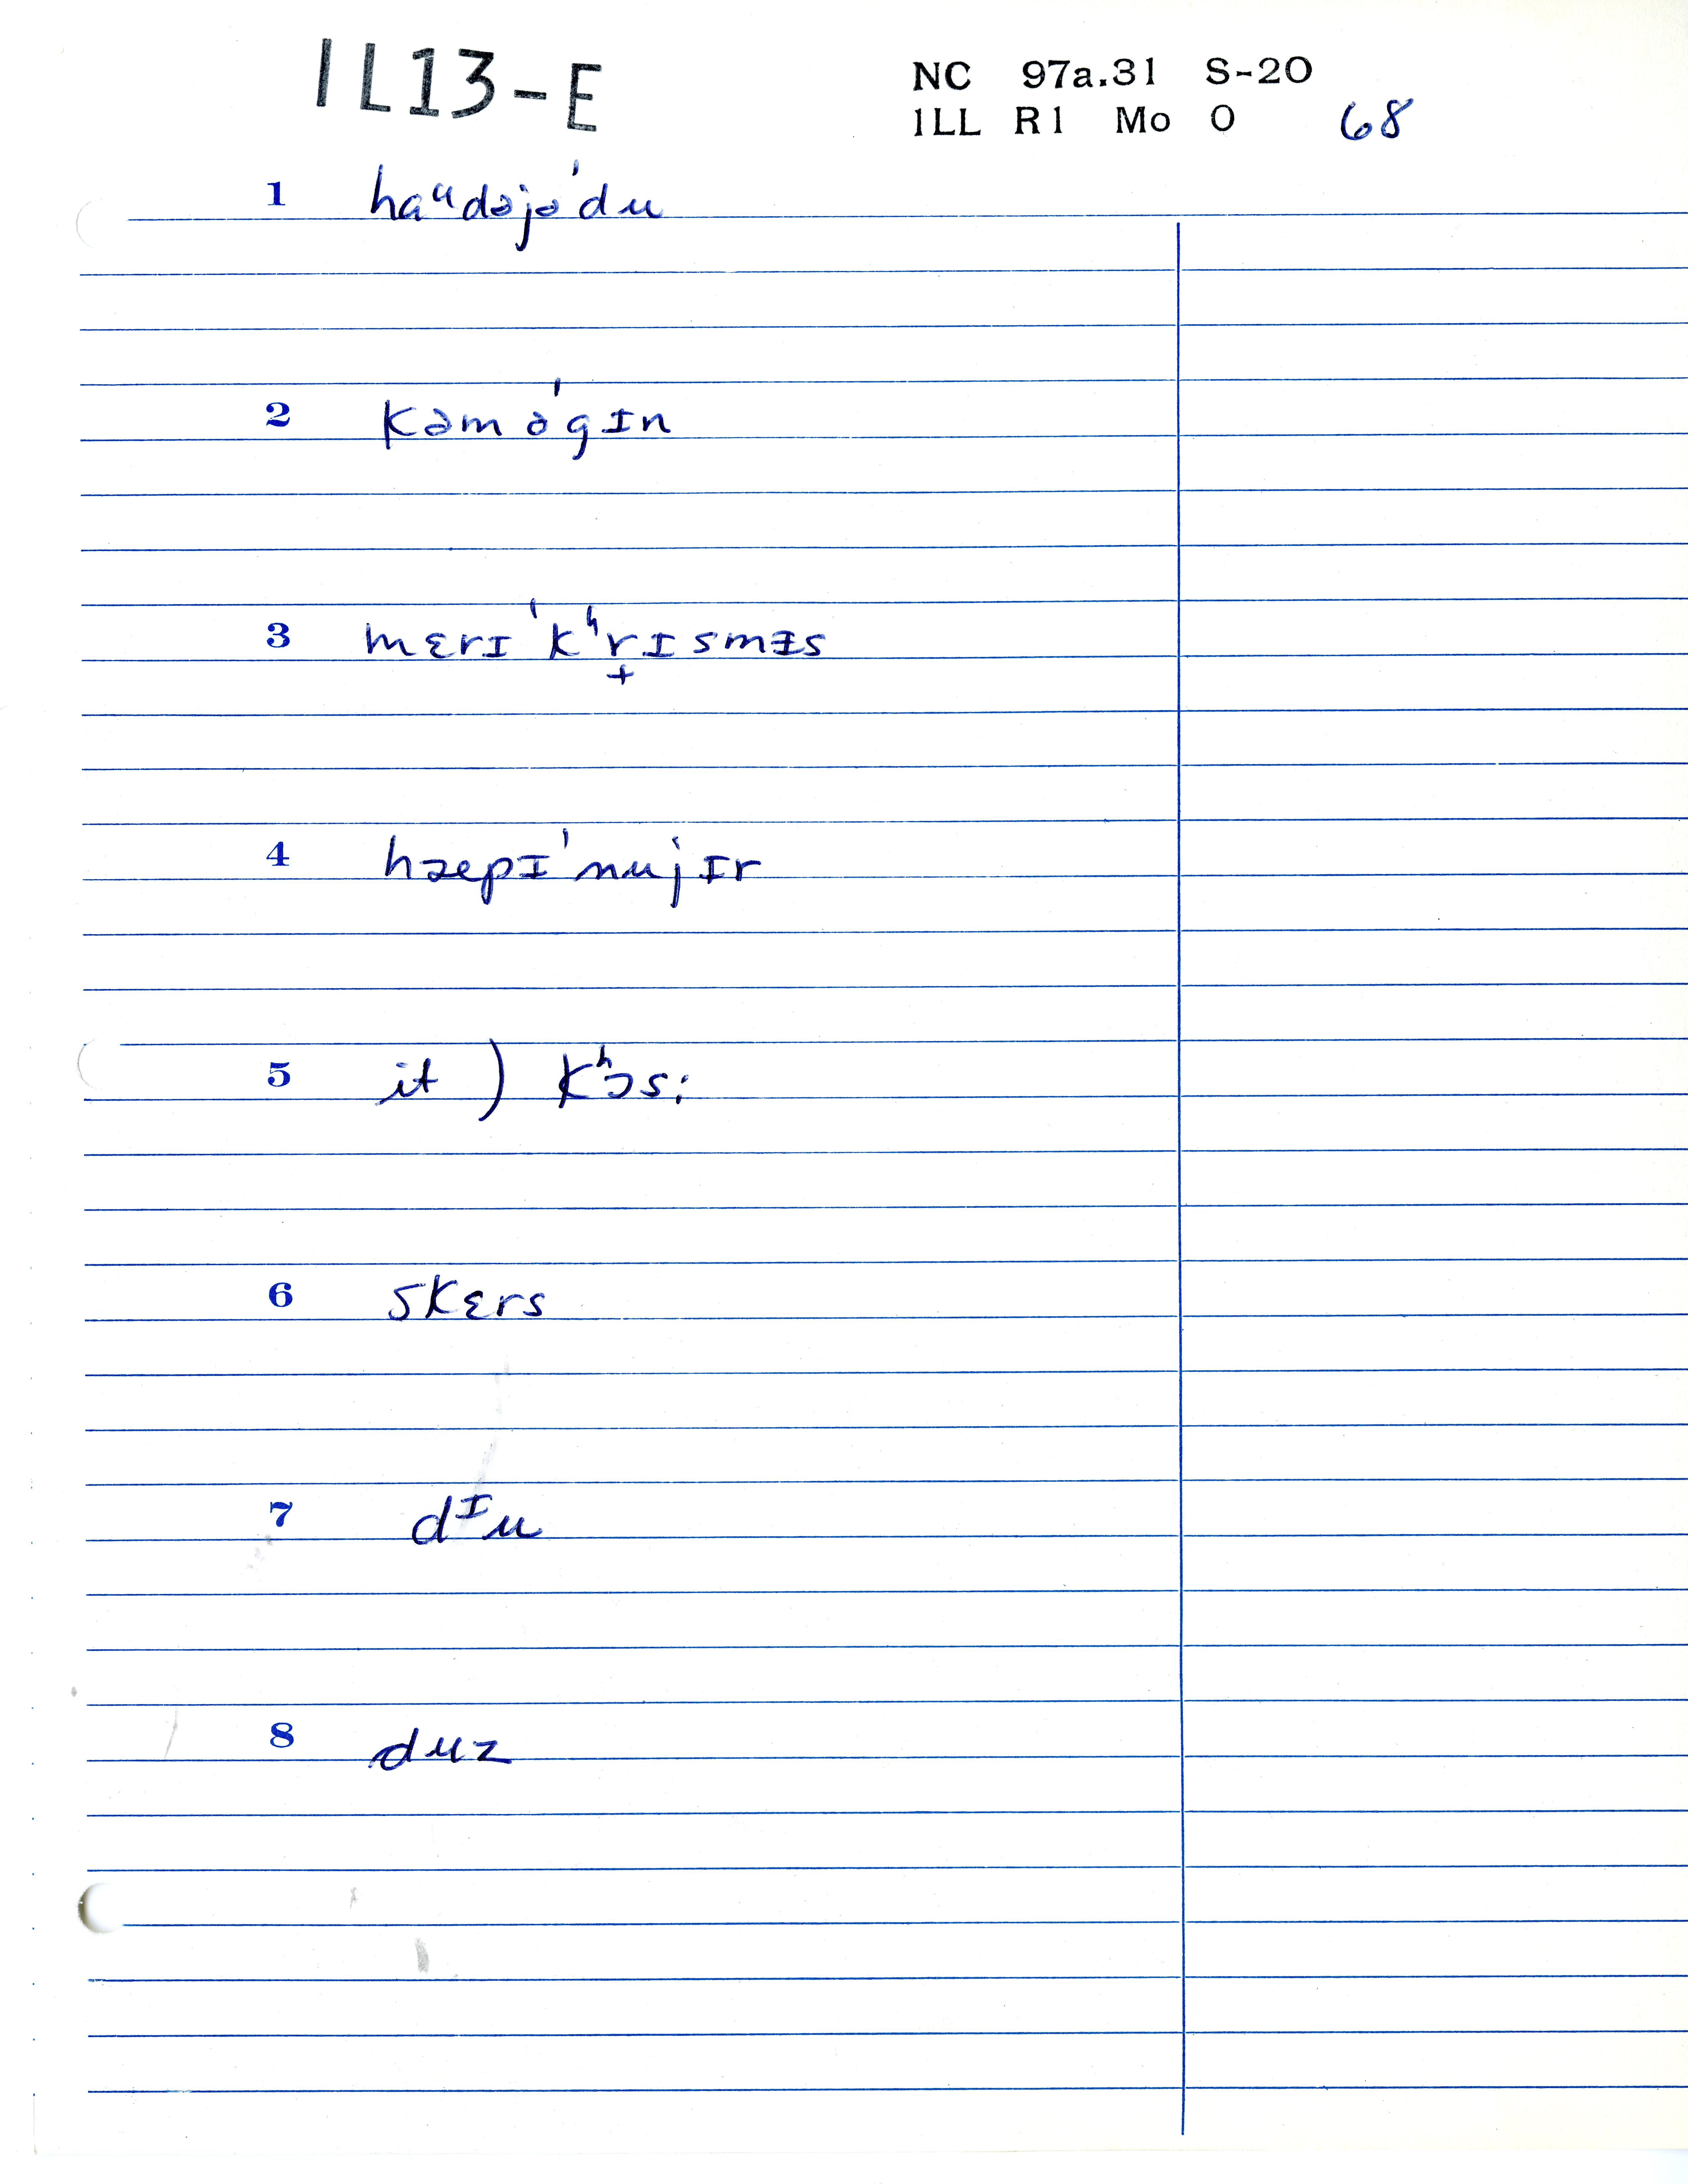 IL13-E
NC 97a.31 S-20
ILL R1 Mo O 68
1 haᵘdəjə'du
2 kəmə'gɪn
3 mɛrɪ'kʰr̟ɪsmᵻs
4 hæpɪ'nujɪr
5 it ) kʰɔs:
6 skɛrs
7 dᶦu
8 duz